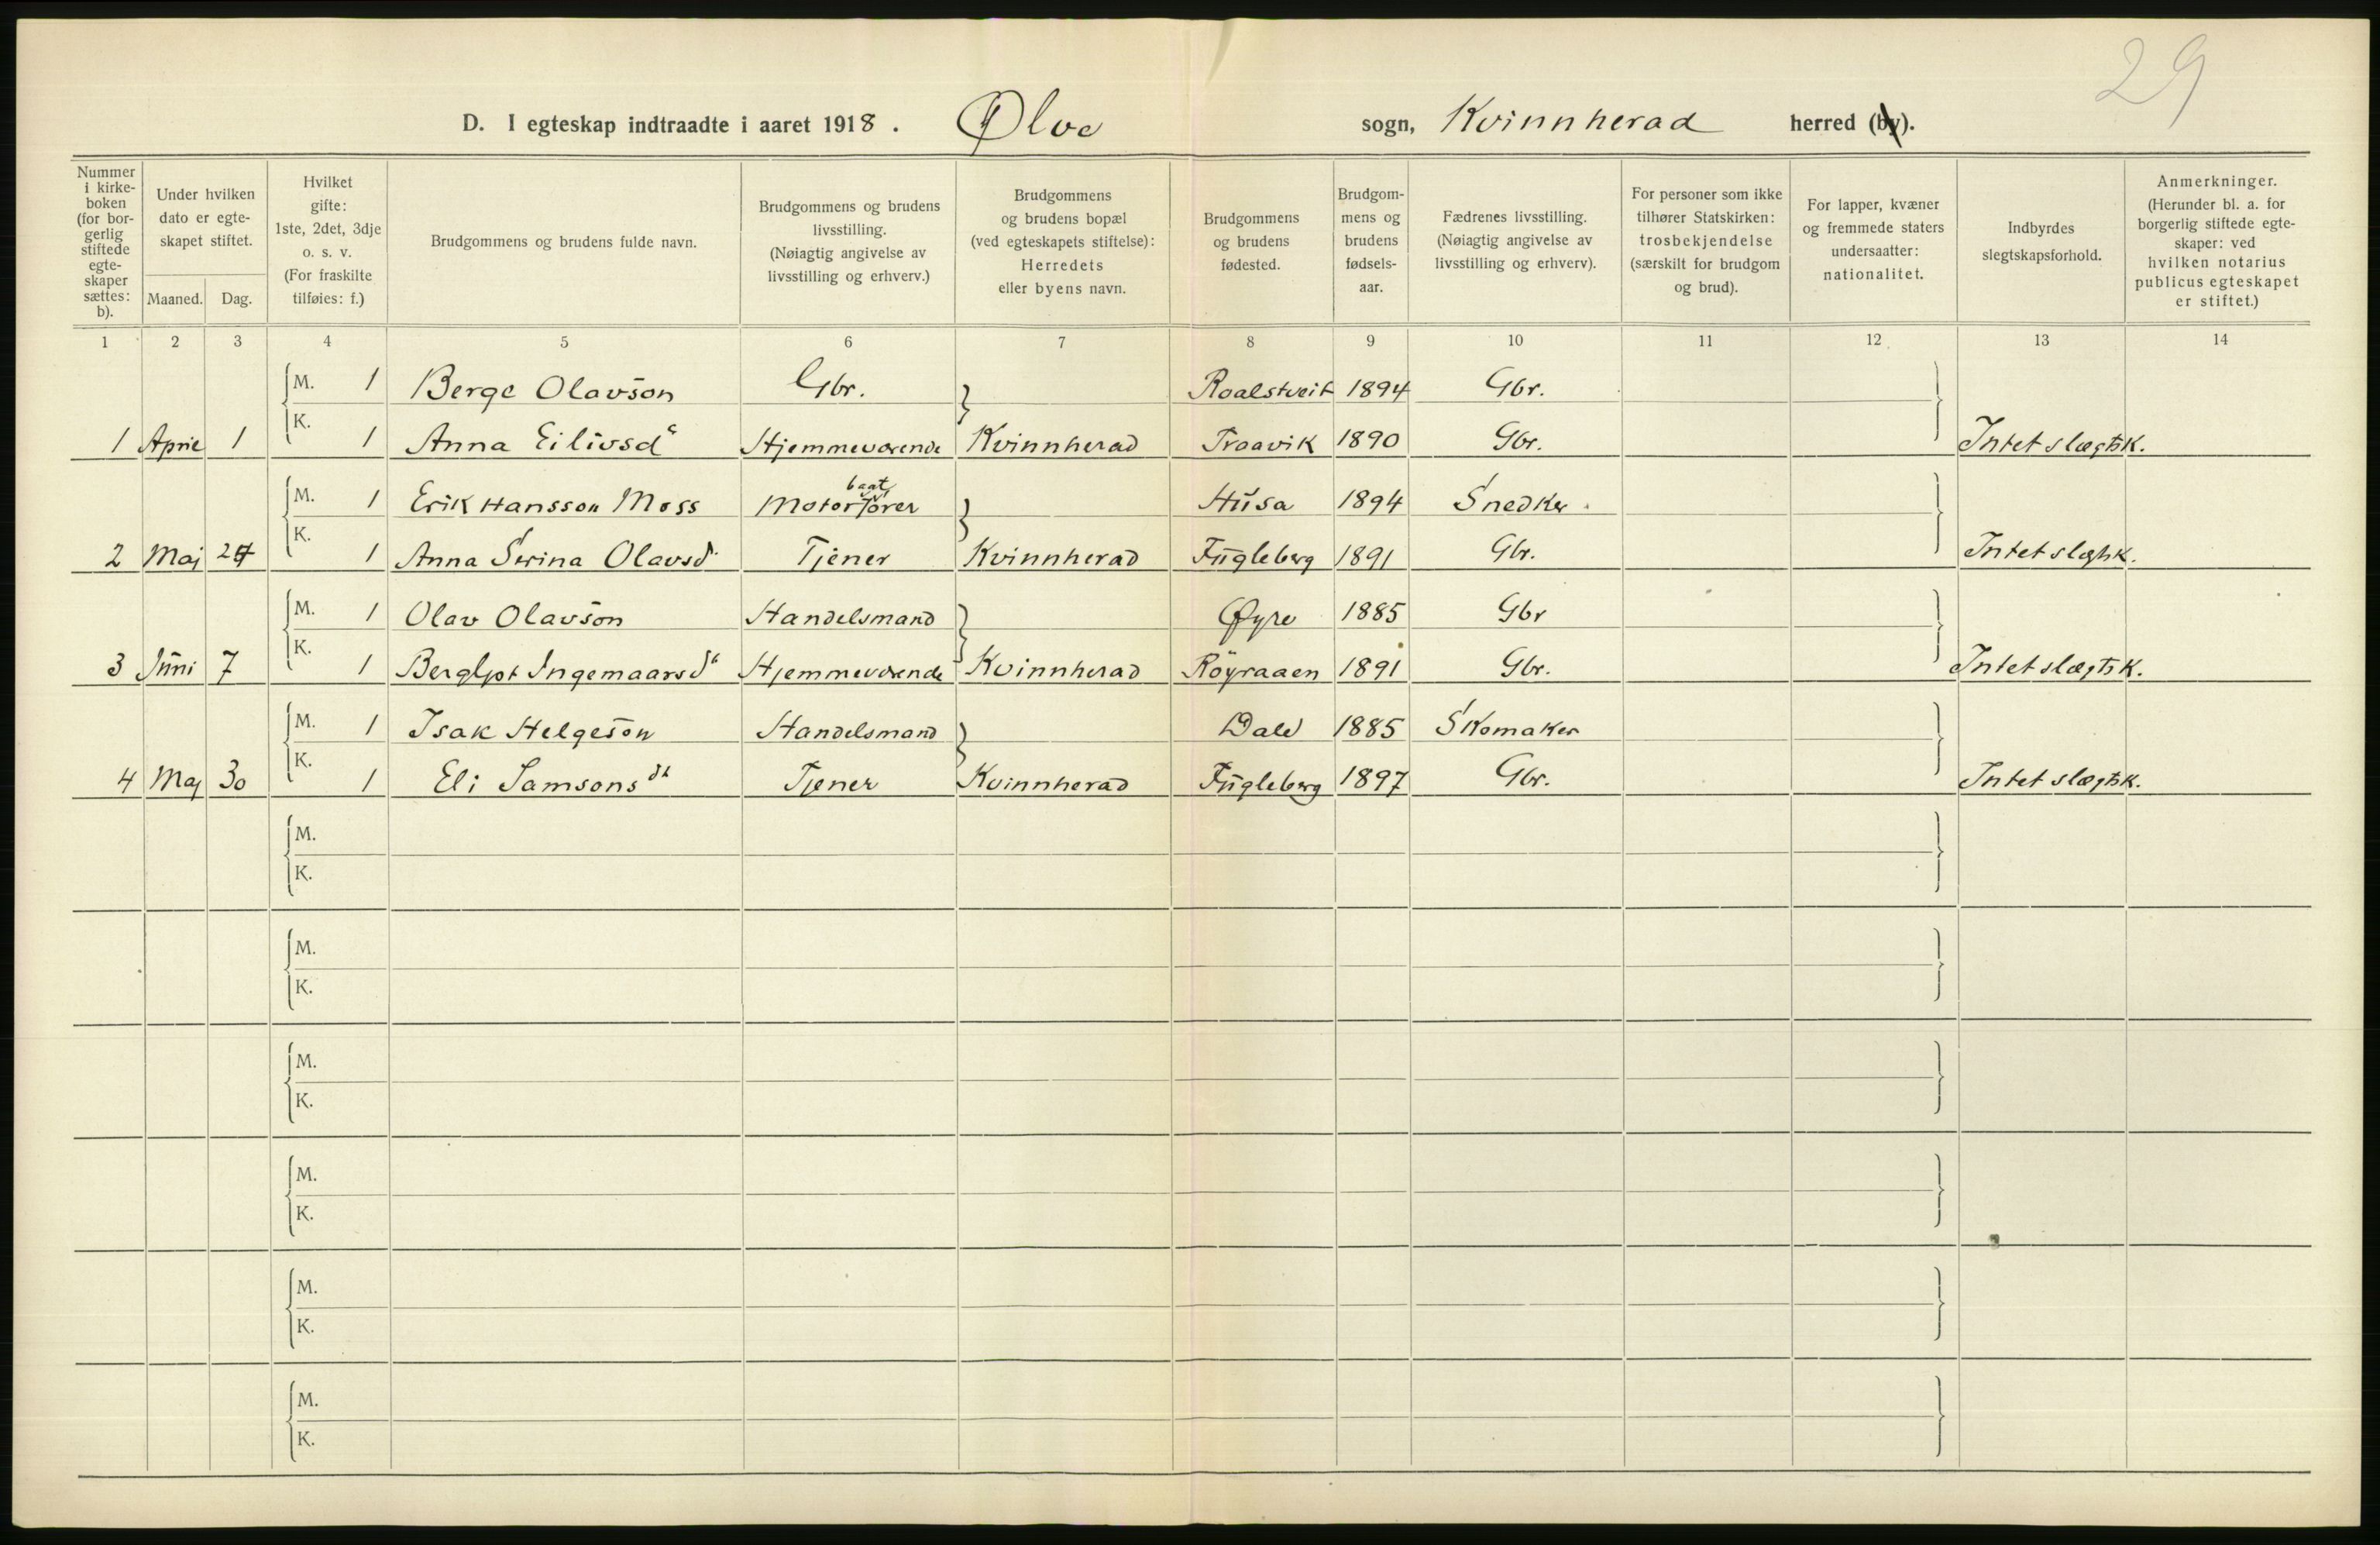 29
D. I egteskap indtraadte i aaret 1918. Ølve sogn, Kvinnherad herred (by).
Nummer i kirkeboken (for borgerlig stiftede egteskaper sættes: b).
Under hvilken dato er egteskapet stiftet.
Maaned. Dag.
Hvilket gifte: 1ste, 2det, 3dje o. s. v. (For fraskilte tilføies: f.)
Brudgommens og brudens fulde navn.
Brudgommens og brudens livsstilling. (Nøiagtig angivelse av livsstilling og erhverv.)
Brudgommens og brudens bopæl (ved egteskapets stiftelse): Herredets eller byens navn.
Brudgommens og brudens fødested.
Brudgommens og brudens fødselsaar.
Fædrenes livsstilling. (Nøiagtig angivelse av livsstilling og erhverv).
For personer som ikke tilhører Statskirken: trosbekjendelse (særskilt for brudgom og brud).
For lapper, kvæner og fremmede staters undersaatter: nationalitet.
Indbyrdes slegtskapsforhold.
Anmerkninger. (Herunder bl. a. for borgerlig stiftede egteskaper: ved hvilken notarius publicus egteskapet er stiftet.)
1 2 3 4 5 6 7 8 9 10 11 12 13 14
M. 1 Berge Olavson Gbr. Roalstveit 1894 Gbr.
1 April 1 K. 1 Anna Eilivsd Hjemmeværende Kvinnherad Traavik 1890 Gbr. Intet slægtsk.
M. 1 Erik Hansson Moss Motorbaatfører Husa 1894 Snedker
2 Maj K. 1 Anna Serina Olavsd. Tjener Kvinnherad Fugleberg 1891 Gbr. Intet slegtsk.
M. 1 Olav Olavson Handelsmand Øyre 1885 Gbr
3 Juni 7 K. 1 Bergljot Ingemaarsdt Hjemmeværende Kvinnherad Röyraaen 1891 Gbr. Intet slægtsk.
M. 1 Isak Helgeson Handelsmand Dale 1885 Skomaker
4 Maj 30 K. 1 Eli Samsonsdt Tjener Kvinnherad Fugleberg 1897 Gbr. Intet slægtsk.
M.
K.
M.
K.
M.
K.
M.
K.
M.
K.
M.
K.